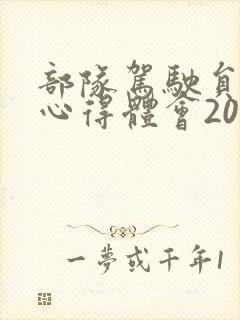 部隊駕駛員
心得體會20
一夢或千年1